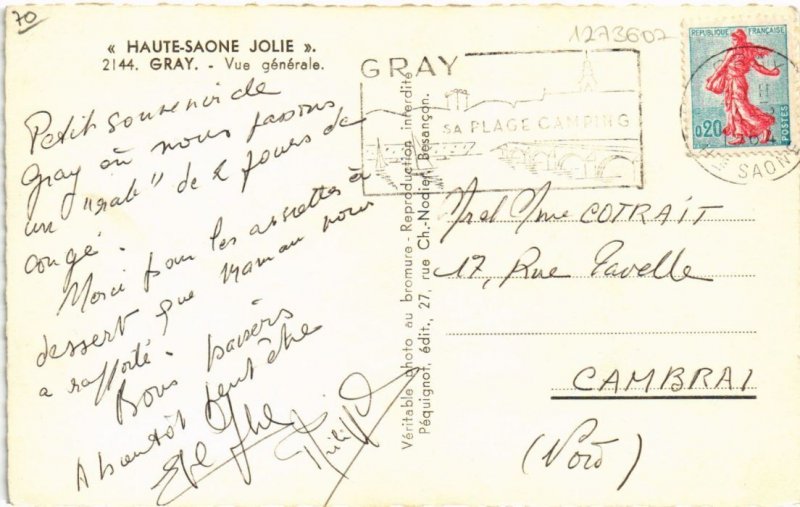 70
« HAUTE-SAONE JOLIE ».
2144. GRAY. - Vue générale.
Petit souvenir de
Gray où nous passons
un "rab" de 2 jours de
congé.
Merci pour les assiettes à
dessert que Maman nous
a rapporté.
Bons baisers
A bientôt peut être
Philippe
Véritable photo au bromure - Reproduction interdite
Péquignot, édit., 27, rue Ch.-Nodier, Besançon.
1273602
GRAY
SA PLAGE CAMPING
REPUBLIQUE FRANÇAISE
0,20
POSTES
SAON
M et Mme COTRAIT
17, Rue Vavelle
CAMBRAI
(Nord)